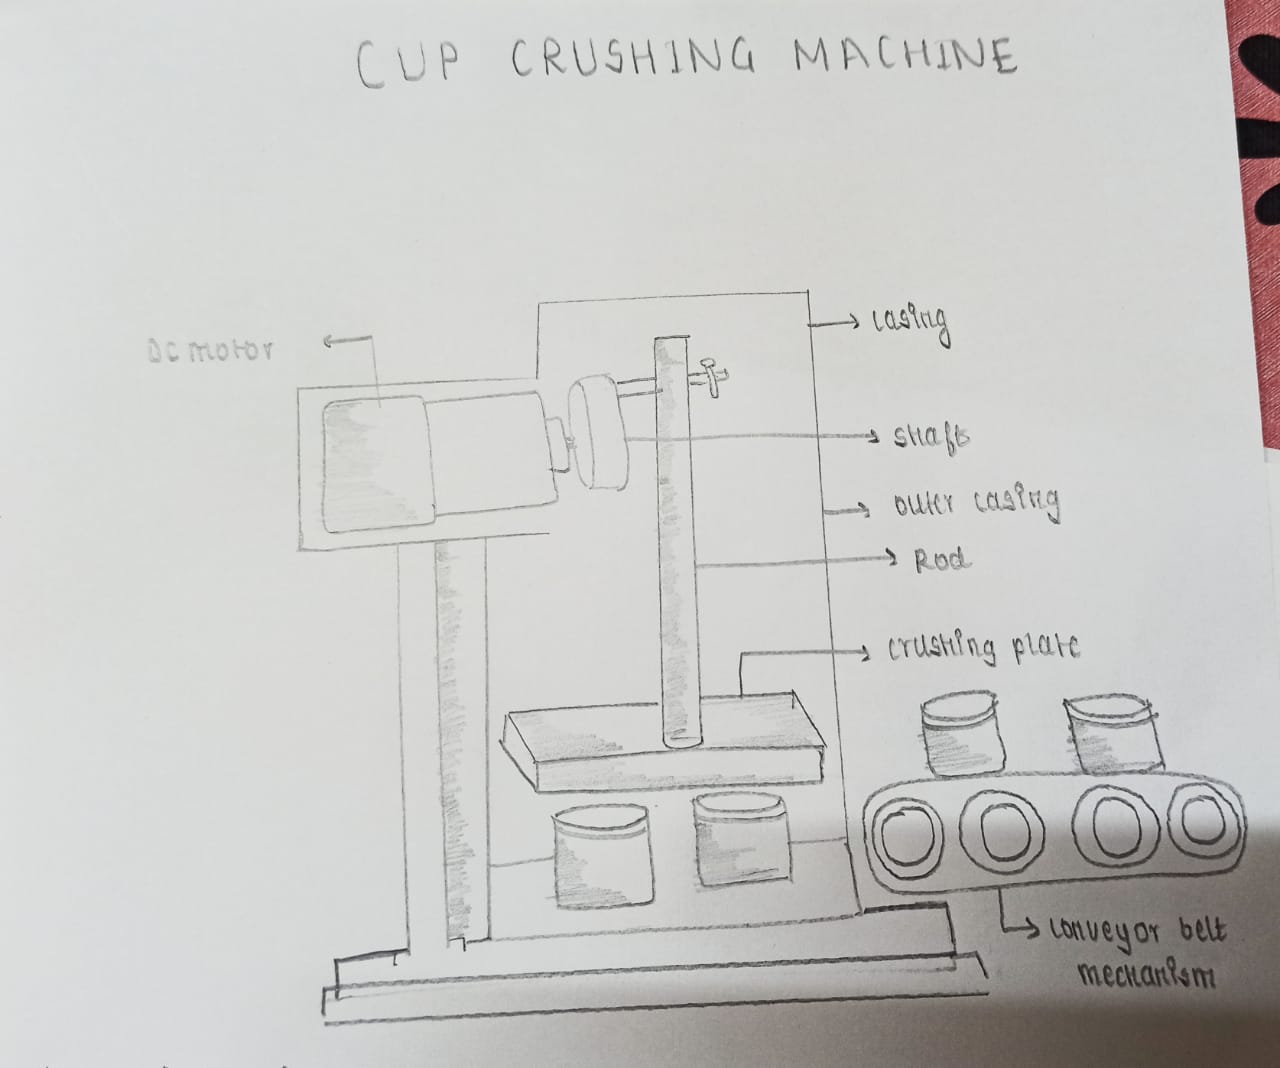 CUP CRUSHING MACHINE
DC motor
casing
shaft
outer casing
Rod
crushing plate
conveyor belt
mechanism